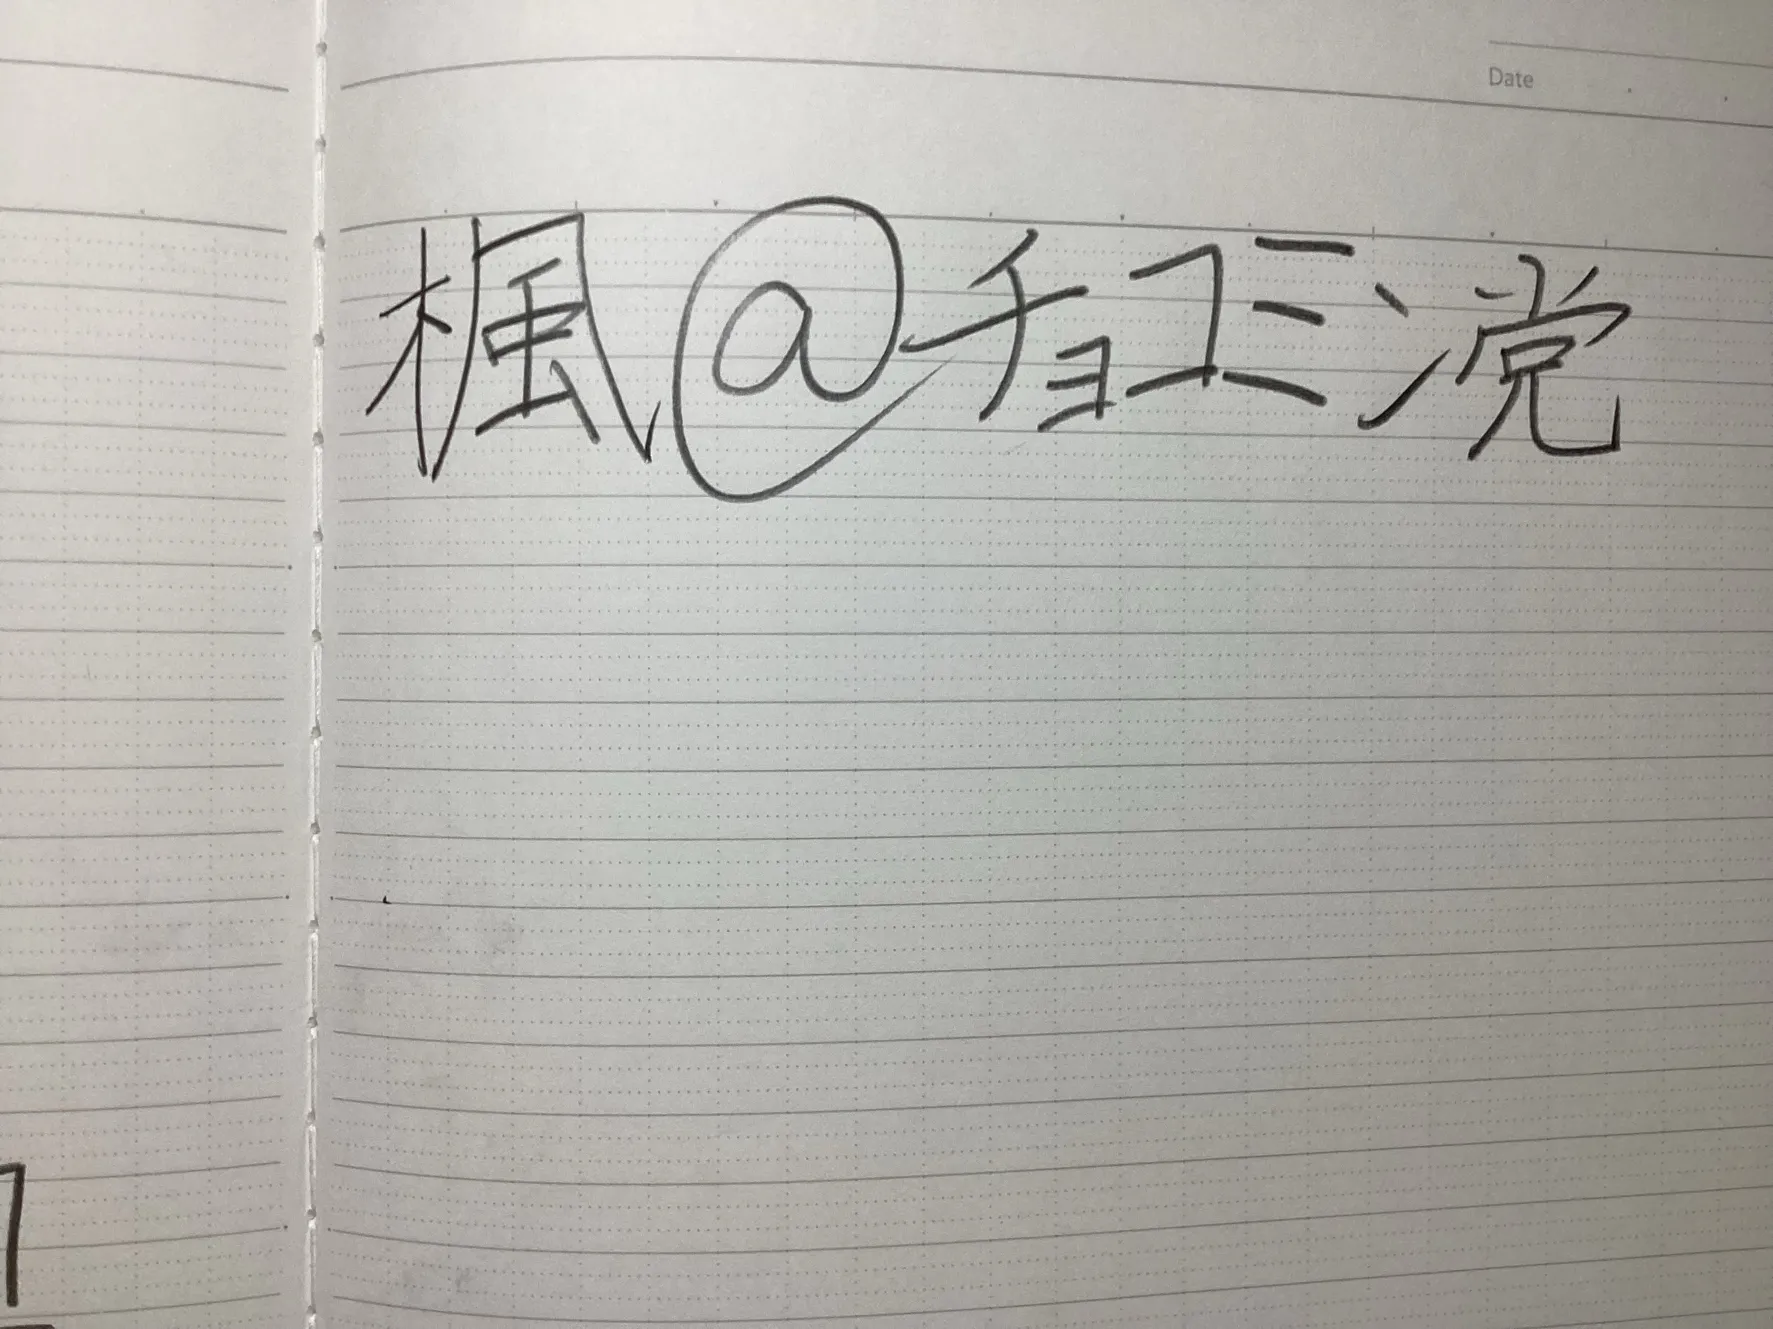 Date
楓@チョコミン党